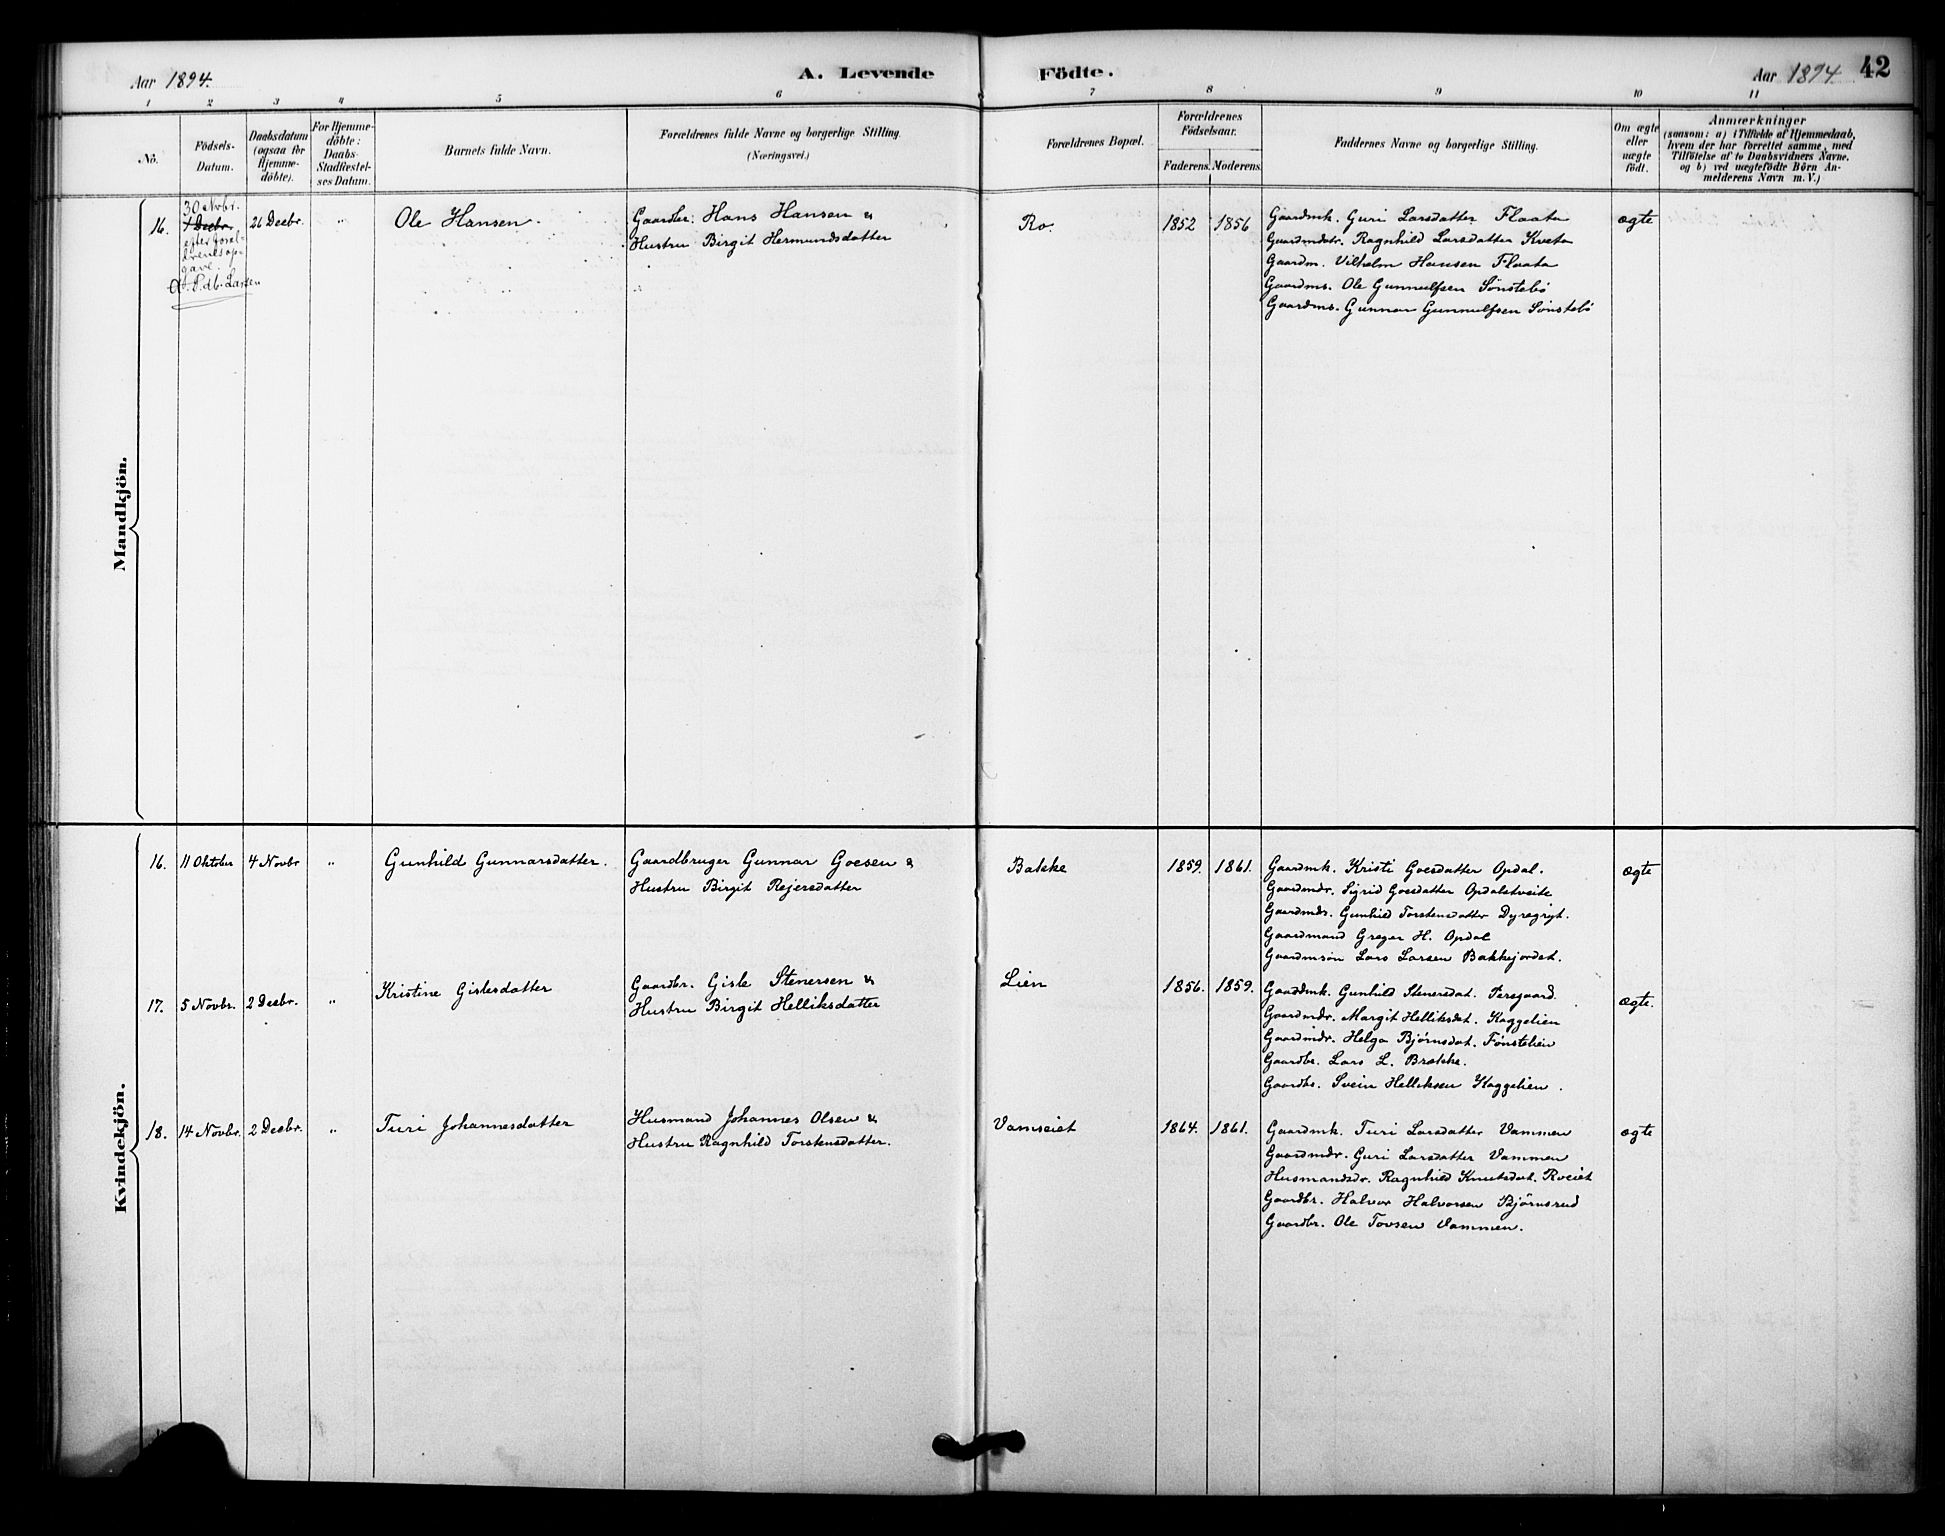 Aar 1894.
A. Levende Födte.
Aar 1894. 42
1 2 3 4 5 6 7 8 9 10 11
No.
Födsels-
Datum.
Daabsdatum
(ogsaa for
Hjemme-
döbte).
For Hjemme-
döbte:
Daabs-
Stadfæstel-
ses Datum.
Barnets fulde Navn.
Forældrenes fulde Navne og borgerlige Stilling.
(Næringsvei.)
Forældrenes Bopæl.
Forældrenes
Födselsaar.
Faderens. Moderens.
Faddernes Navne og borgerlige Stilling.
Om ægte
eller
uægte
født.
Anmærkninger
(saasom: a) i Tilfælde af Hjemmedaab,
hvem der har forrettet samme, med
Tilföielse af to Daabsvidners Navne,
og b) ved uægtefödte Börn An-
melderens Navn m. V.)
Mandkjön.
16.
30 Novbr.
1 Decbr.
efter foræl-
drenes op-
gave.
Larsen
26 Decbr.
"
Ole Hansen.
Gaardbr. Hans Hansen &
Hustru Birgit Hermundsdatter
Ro.
1852 1856
Gaardmk. Guri Larsdatter Flaata
Gaardmdatr. Ragnhild Larsdatter Kveta
Gaardm. Vilhelm Hansen Flaata
Gaardms. Ole Gunnulfsen Sønstebø
Gaardms. Gunnar Gunnulfsen Sønstebø
ægte
Kvindekjön.
16. 11 Oktober 4 Novbr "
Gunhild Gunnarsdatter.
Gaardbruger Gunnar Goesen &
Hustru Birgit Rejersdatter
Bakke
1859. 1861.
Gaardmk. Kristi Goesdatter Opdal.
Gaardmdr. Sigrid Goesdatter Opdalstveite
Gaardmdr. Gunhild Torstensdatter Dyregryt.
Gaardmand Greger H. Opdal
Gaardmsøn Lars Larsen Bakkejordet.
ægte
17. 5 Novbr. 2 Decbr. "
Kristine Gislesdatter
Gaardbr. Gisle Stenersen &
Hustru Birgit Helliksdatter
Lien
1856. 1859.
Gaardmk. Gunhild Stenersdat. Persgaard.
Gaardmdr. Margit Helliksdat. Kaggelien
Gaardmdr. Helga Bjørnsdat. Fønstelien
Gaardbr. Lars L. Brække.
Gaardbr. Svein Helliksen Kaggelien.
ægte.
18. 14 Novbr. 2 Decbr. "
Turi Johannesdatter
Husmand Johannes Olsen &
Hustru Ragnhild Torstensdatter.
Vamseiet
1864. 1861.
Gaardmk. Turi Larsdatter Vammen
Gaardmdr. Guri Larsdatter Vammen
Husmandsdr. Ragnhild Knutsdat. Roeiet
Gaardbr. Halvor Halvorsen Bjørnsrud
Gaardbr. Ole Tovsen Vammen.
ægte